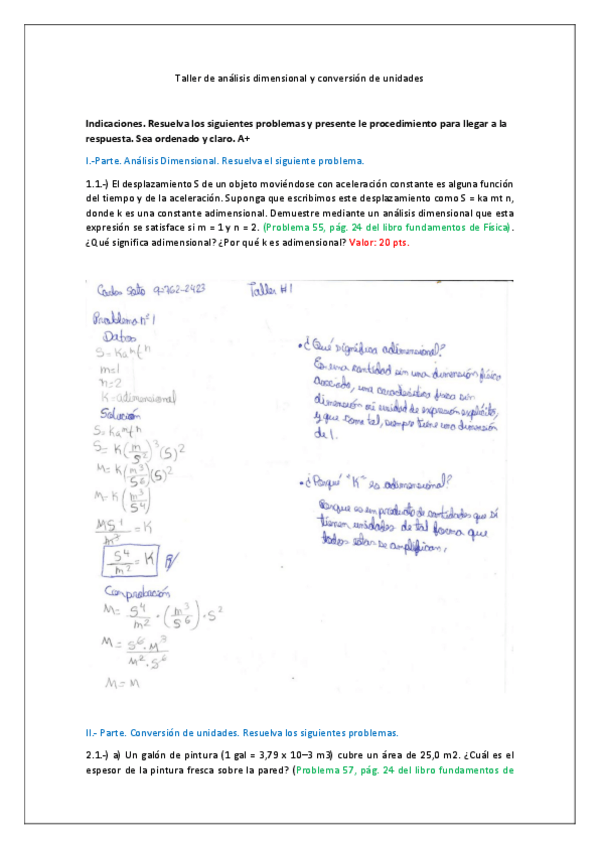 Taller de análisis dimensional y conversión de unidades
Indicaciones. Resuelva los siguientes problemas y presente le procedimiento para llegar a la
respuesta. Sea ordenado y claro. A+
I.-Parte. Análisis Dimensional. Resuelva el siguiente problema.
1.1.-) El desplazamiento S de un objeto moviéndose con aceleración constante es alguna función
del tiempo y de la aceleración. Suponga que escribimos este desplazamiento como S = ka mt n,
donde k es una constante adimensional. Demuestre mediante un análisis dimensional que esta
expresión se satisface si m = 1 y n = 2. (Problema 55, pág. 24 del libro fundamentos de Física).
¿Qué significa adimensional? ¿Por qué k es adimensional? Valor: 20 pts.
Taller #1
Problema nº1
Datos
S = Ka^m t^n
m=1
n=2
K=adimensional
Solución
S = Ka^m t^n
S = K(m/S^2)^3 (S)^2
M = K(m^3/S^6)(S)^2
M = K(m^3/S^4)
S^4/m^2 = K R/
Comprobación
M = S^4/m^2 · (m^3/S^6) · S^2
M = S^6 · M^3 / M^2 · S^6
M = M
• ¿Qué significa adimensional?
Es una cantidad sin una dimensión física
asociada, una característica física sin
dimensión ni unidad de expresión explícita,
y que como tal, siempre tiene una dimensión
de 1.
• ¿Porqué "K" es adimensional?
Porque es un producto de cantidades que sí
tienen unidades de tal forma que
todas estas se
II.- Parte. Conversión de unidades. Resuelva los siguientes problemas.
2.1.-) a) Un galón de pintura (1 gal = 3,79 x 10–3 m3) cubre un área de 25,0 m2. ¿Cuál es el
espesor de la pintura fresca sobre la pared? (Problema 57, pág. 24 del libro fundamentos de